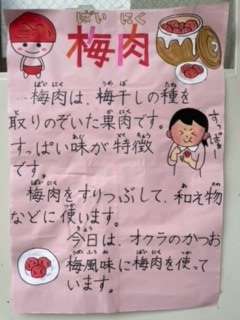 ばい にく
梅肉
梅肉は、梅干しの種を
取りのぞいた果肉です。
すっぱい味が特徴
です。
すっぱー
梅肉をすりつぶして、和え物
などに使います。
今日は、オクラのかつお
梅風味に梅肉を使って
います。